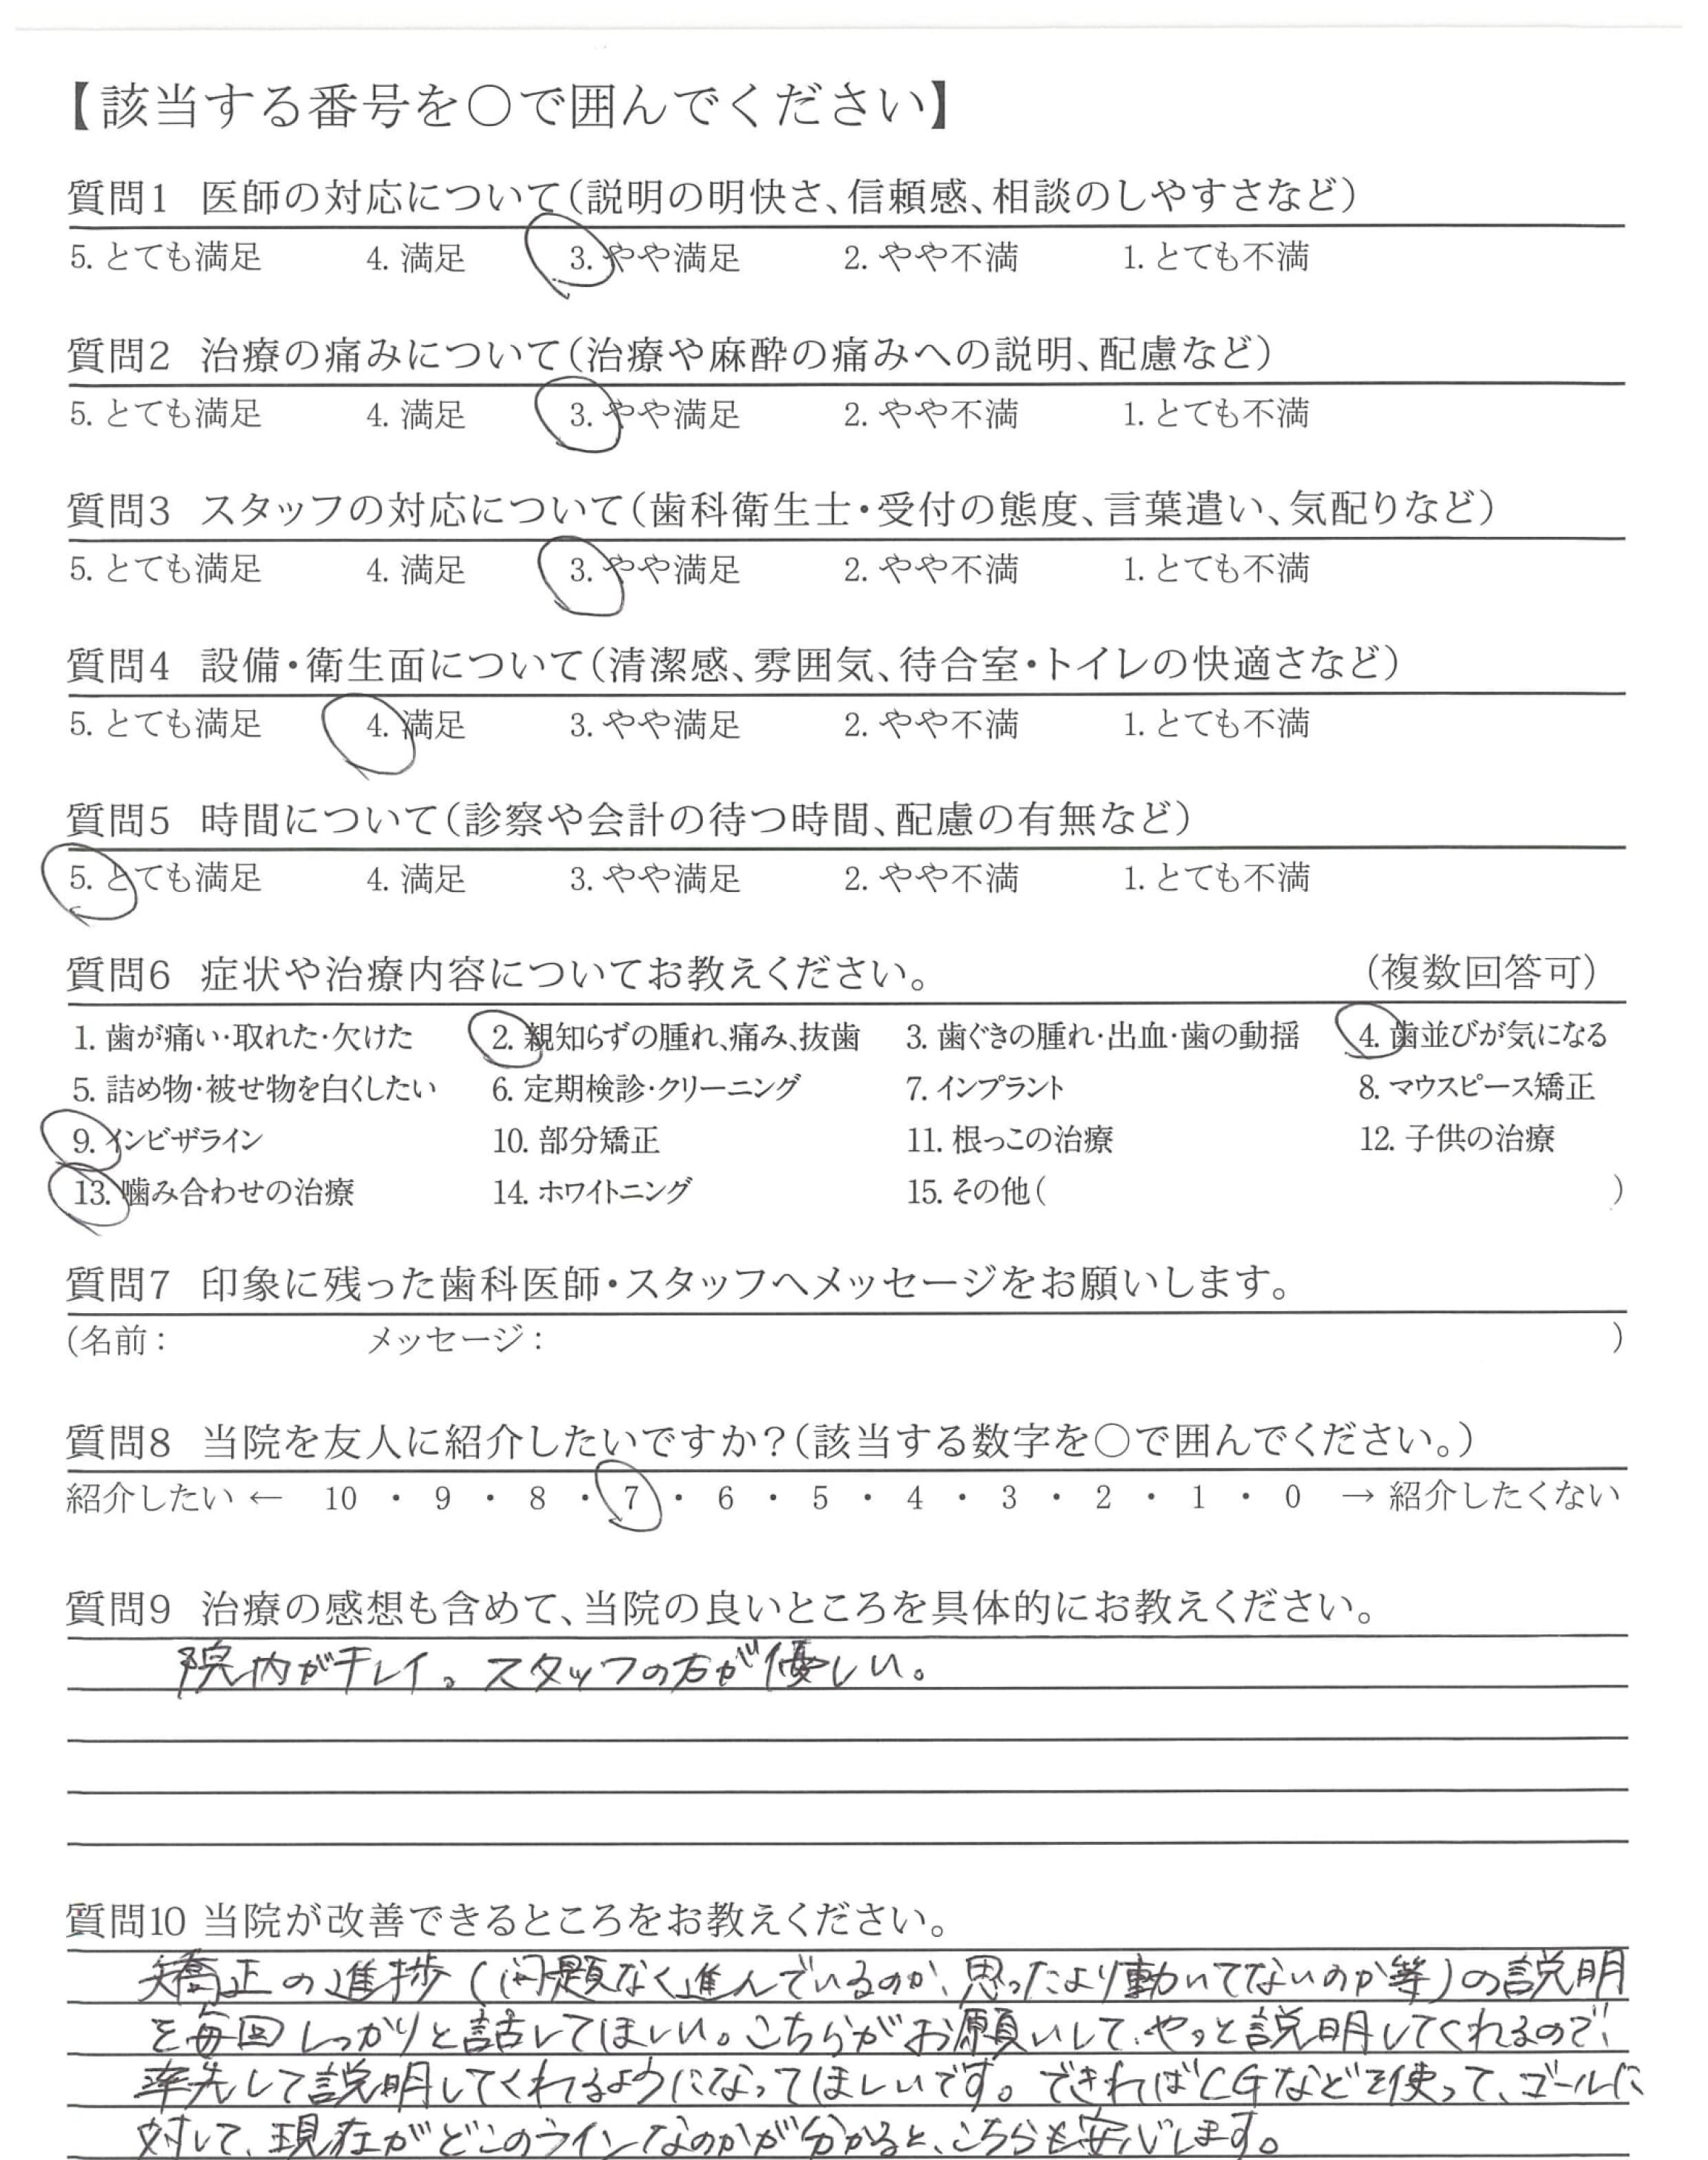 【該当する番号を○で囲んでください】
質問1 医師の対応について(説明の明快さ、信頼感、相談のしやすさなど)
5. とても満足 4. 満足 3. やや満足 2. やや不満 1. とても不満
質問2 治療の痛みについて(治療や麻酔の痛みへの説明、配慮など)
5. とても満足 4. 満足 3. やや満足 2. やや不満 1. とても不満
質問3 スタッフの対応について(歯科衛生士・受付の態度、言葉遣い、気配りなど)
5. とても満足 4. 満足 3. やや満足 2. やや不満 1. とても不満
質問4 設備・衛生面について(清潔感、雰囲気、待合室・トイレの快適さなど)
5. とても満足 4. 満足 3. やや満足 2. やや不満 1. とても不満
質問5 時間について(診察や会計の待つ時間、配慮の有無など)
5. とても満足 4. 満足 3. やや満足 2. やや不満 1. とても不満
質問6 症状や治療内容についてお教えください。 (複数回答可)
1. 歯が痛い・取れた・欠けた 2. 親知らずの腫れ、痛み、抜歯 3. 歯ぐきの腫れ・出血・歯の動揺 4. 歯並びが気になる
5. 詰め物・被せ物を白くしたい 6. 定期検診・クリーニング 7. インプラント 8. マウスピース矯正
9. インビザライン 10. 部分矯正 11. 根っこの治療 12. 子供の治療
13. 噛み合わせの治療 14. ホワイトニング 15. その他( )
質問7 印象に残った歯科医師・スタッフへメッセージをお願いします。
(名前: メッセージ: )
質問8 当院を友人に紹介したいですか?(該当する数字を○で囲んでください。)
紹介したい ← 10 ・ 9 ・ 8 ・ 7 ・ 6 ・ 5 ・ 4 ・ 3 ・ 2 ・ 1 ・ 0 → 紹介したくない
質問9 治療の感想も含めて、当院の良いところを具体的にお教えください。
院内がキレイ。スタッフの方が優しい。
質問10 当院が改善できるところをお教えください。
矯正の進捗(問題なく進んでいるのか、思ったより動いてないのか等)の説明
を毎回しっかりと話してほしい。こちらがお願いして、やっと説明してくれるので、
率先して説明してくれるようになってほしいです。できればCGなどを使って、ゴールに
対して、現在がどこのラインなのかが分かると、こちらも安心します。